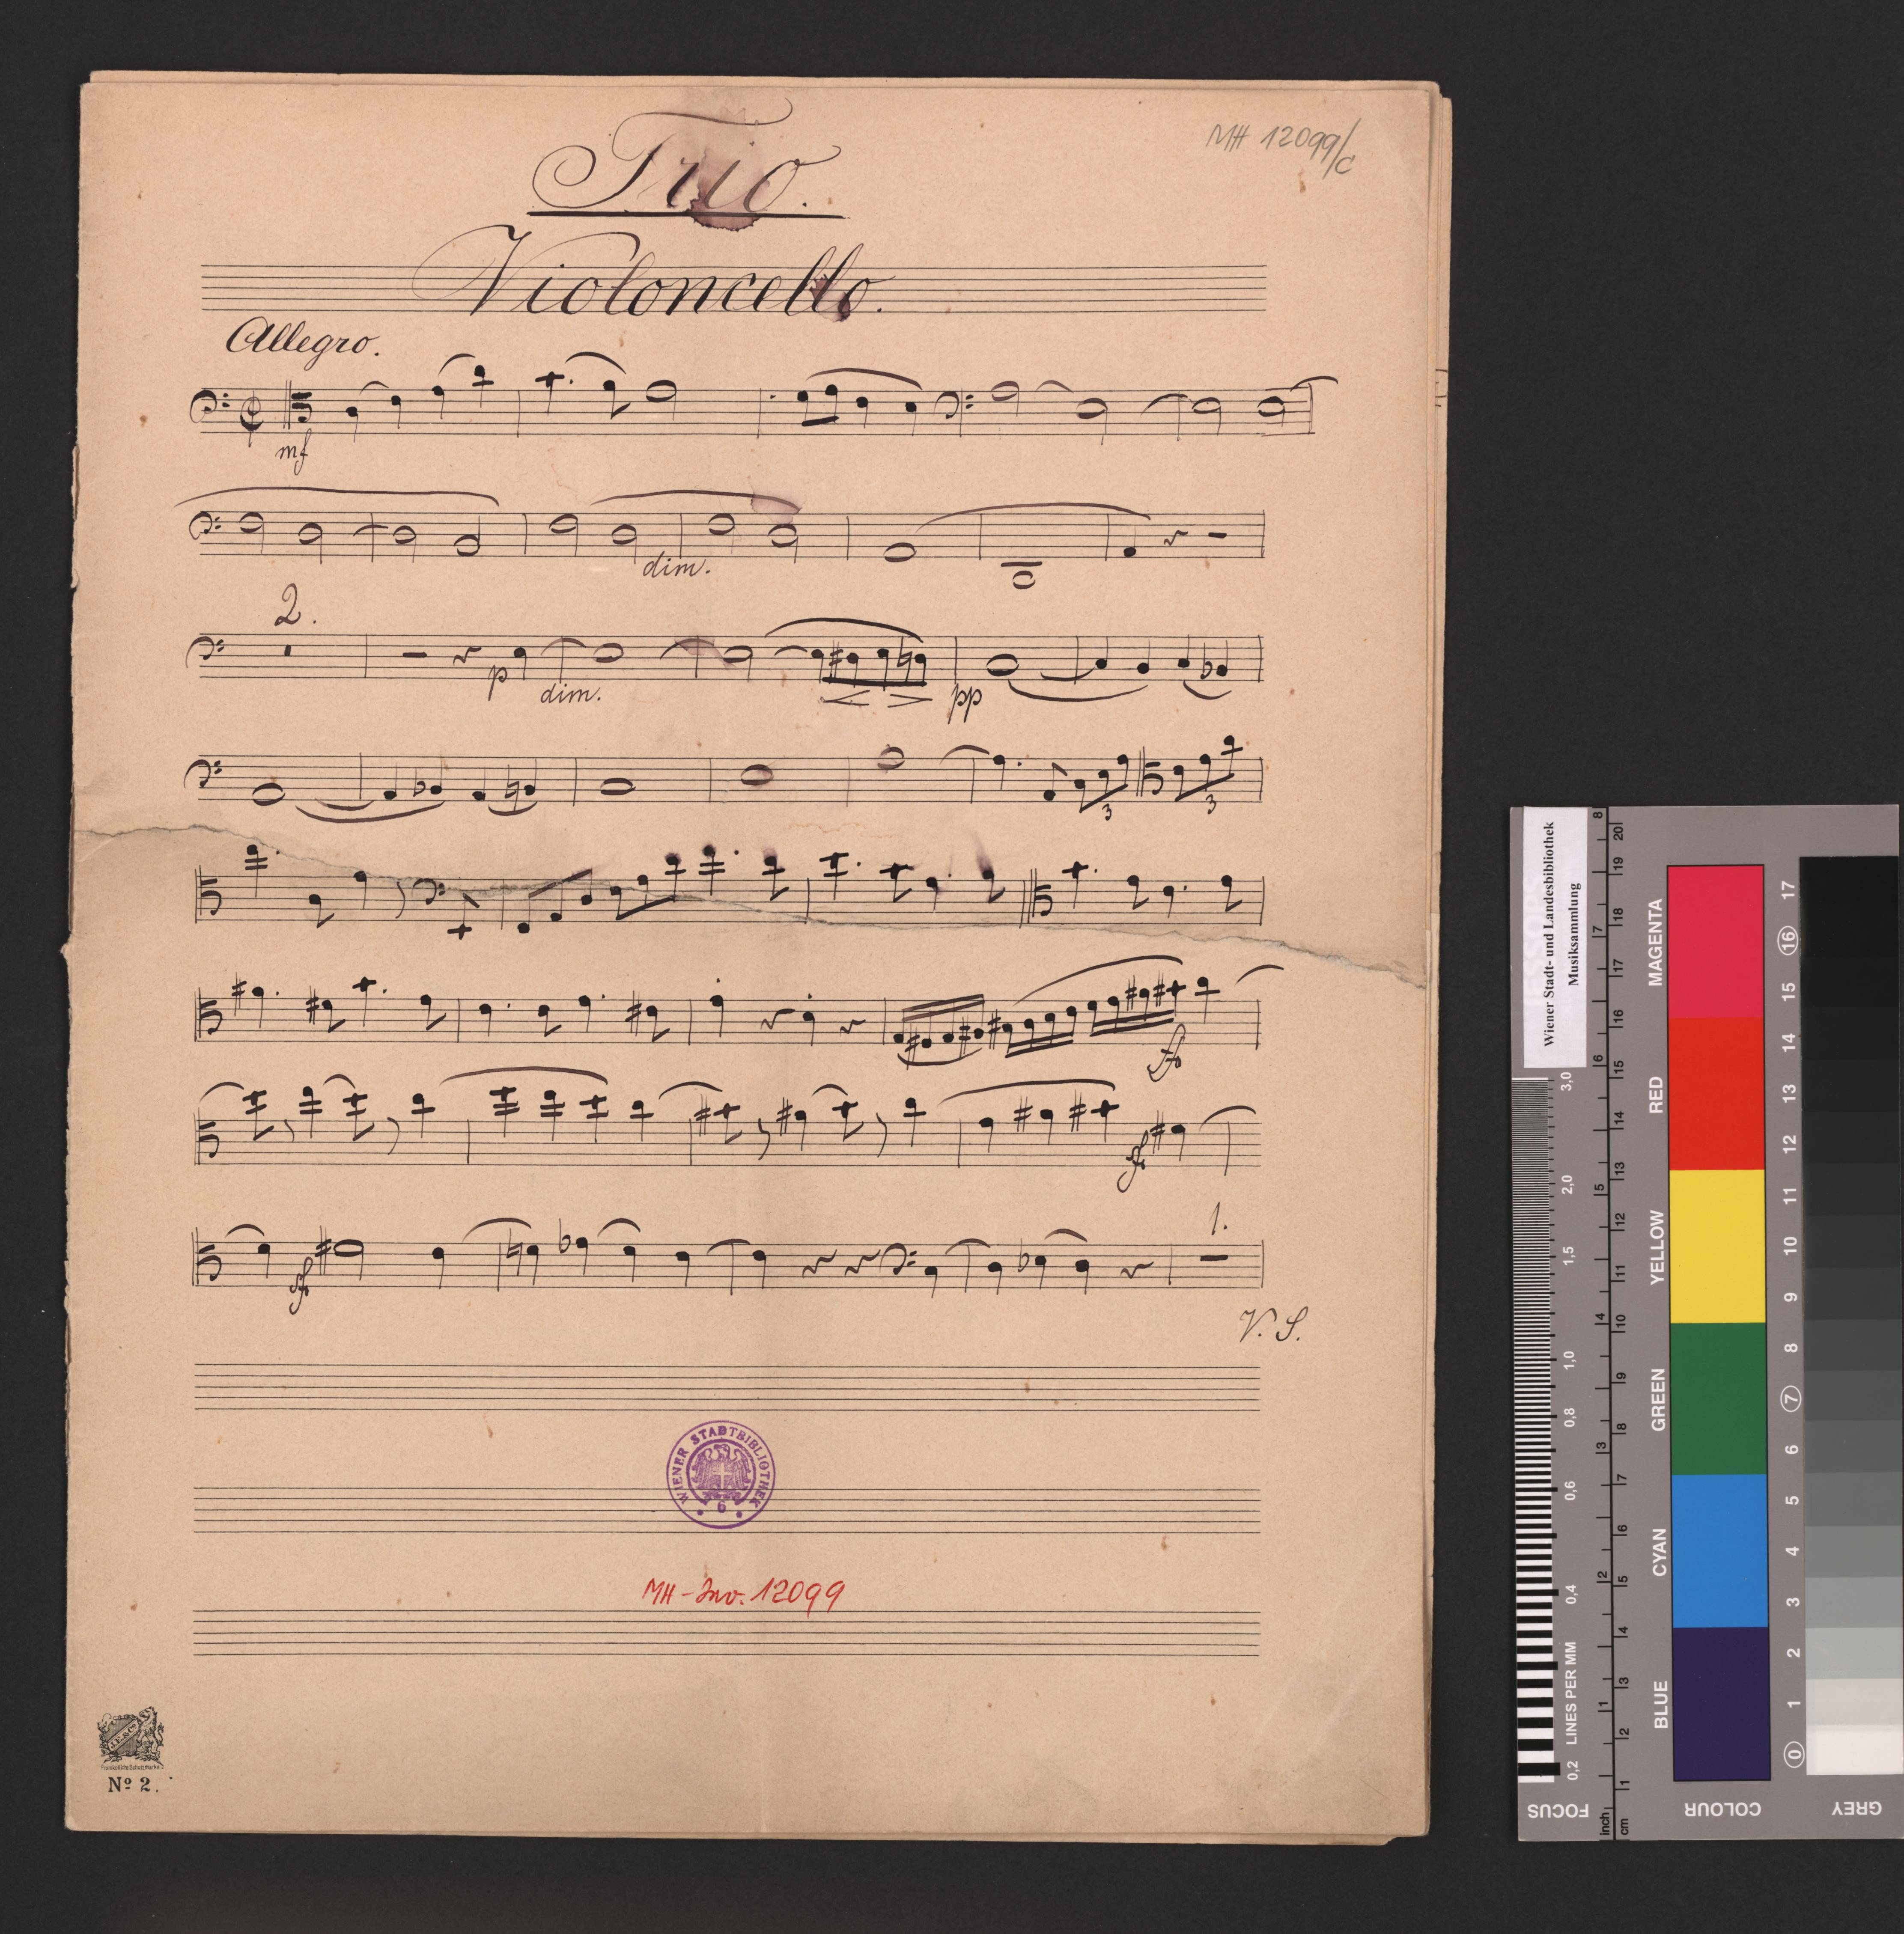 Trio.
MH 12099/c
Violoncello.
Allegro.
mf
dim.
2.
p
dim.
pp
3
3
ff
sf
sf
1.
V. S.
WIENER STADTBIBLIOTHEK
6
MH-Inv. 12099
J.E.&Co.
Protokollirte Schutzmarke
No 2.
Wiener Stadt- und Landesbibliothek
Musiksammlung
MAGENTA
RED
YELLOW
GREEN
CYAN
BLUE
3,0
2,0
1,5
1,0
0,8
0,6
0,4
0,2
LINES PER MM
FOCUS
inch
cm
8 7 6 5 4 3 2 1
20 19 18 17 16 15 14 13 12 11 10 9 8 7 6 5 4 3 2 1
COLOUR
17
16
15
14
13
12
11
10
9
8
7
6
5
4
3
2
1
0
GREY